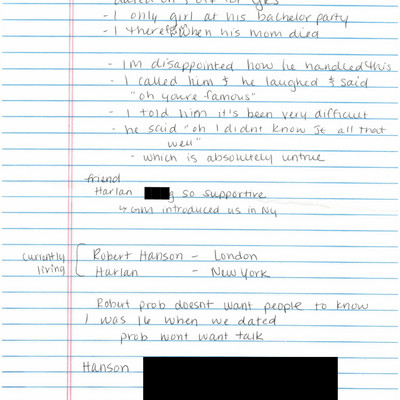 - I only girl at his bachelor party
- I there when his mom died
- IM disappointed how he handled this
- I called him & he laughed & said
"oh youre famous"
- I told him it's been very difficult
- he said "oh I didnt know JE all that
well"
- which is absolutely untrue
friend
Harlan so supportive
↳ GM introduced us in NY
currently
living
Robert Hanson - London
Harlan - New York
Robert prob doesnt want people to know
I was 16 when we dated
prob wont want talk
Hanson